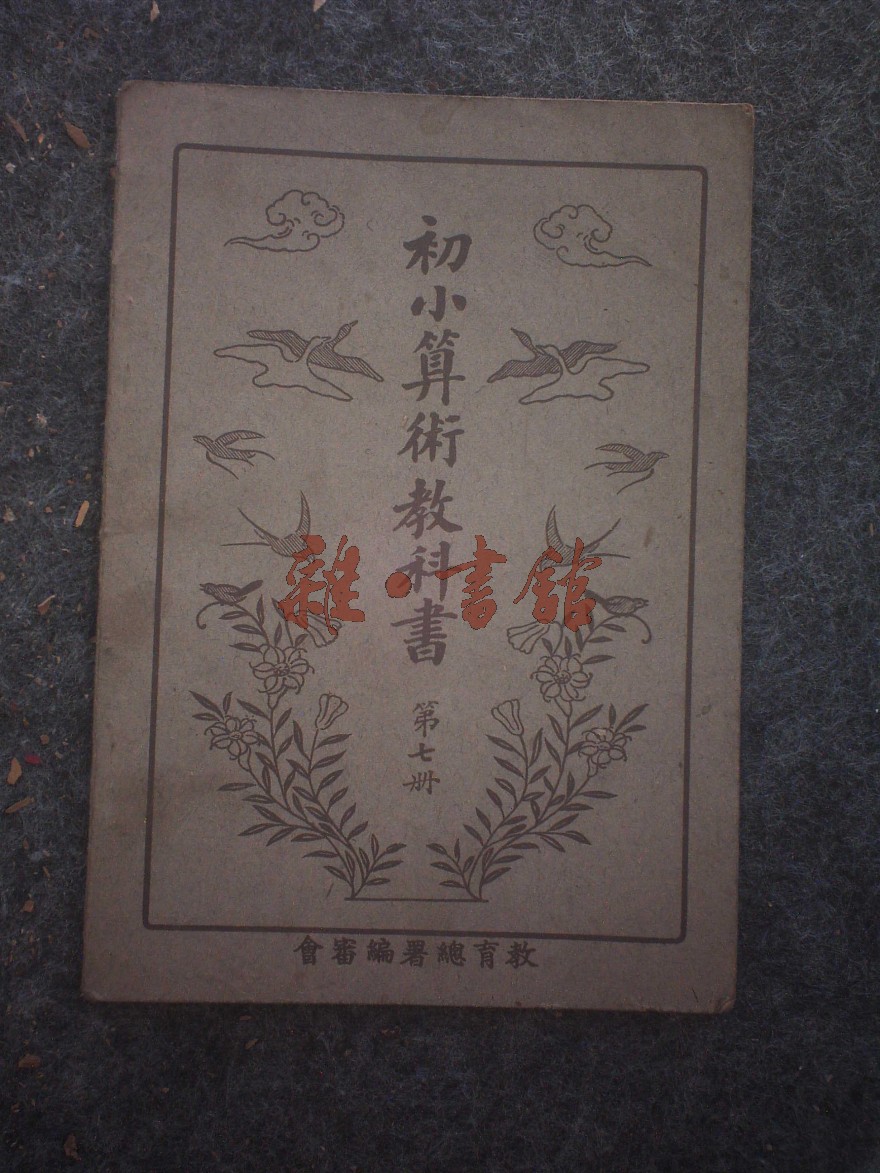 初小算術教科書
第七册
會審編署總育教
雜·書館